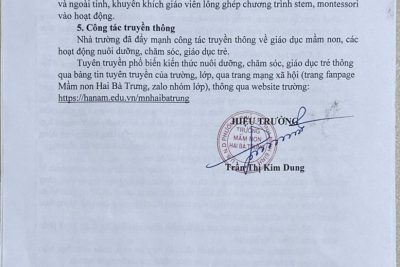 và ngoài tỉnh, khuyến khích giáo viên lồng ghép chương trình stem, montessori
vào hoạt động.
5. Công tác truyền thông
Nhà trường đã đẩy mạnh công tác truyền thông về giáo dục mầm non, các
hoạt động nuôi dưỡng, chăm sóc, giáo dục trẻ.
Tuyên truyền phổ biến kiến thức nuôi dưỡng, chăm sóc, giáo dục trẻ thông
qua bảng tin tuyên truyền của trường, lớp, qua trang mạng xã hội (trang fanpage
Mầm non Hai Bà Trưng, zalo nhóm lớp), thông qua website trường:
https://hanam.edu.vn/mnhaibatrung
HIỆU TRƯỞNG
TRƯỜNG
MẦM NON
HAI BÀ TRƯNG
Trần Thị Kim Dung